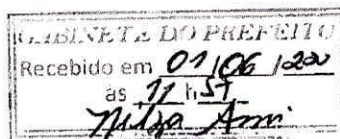 GABINETE DO PREFEITO
Recebido em 01/06/200
às 11 h 57